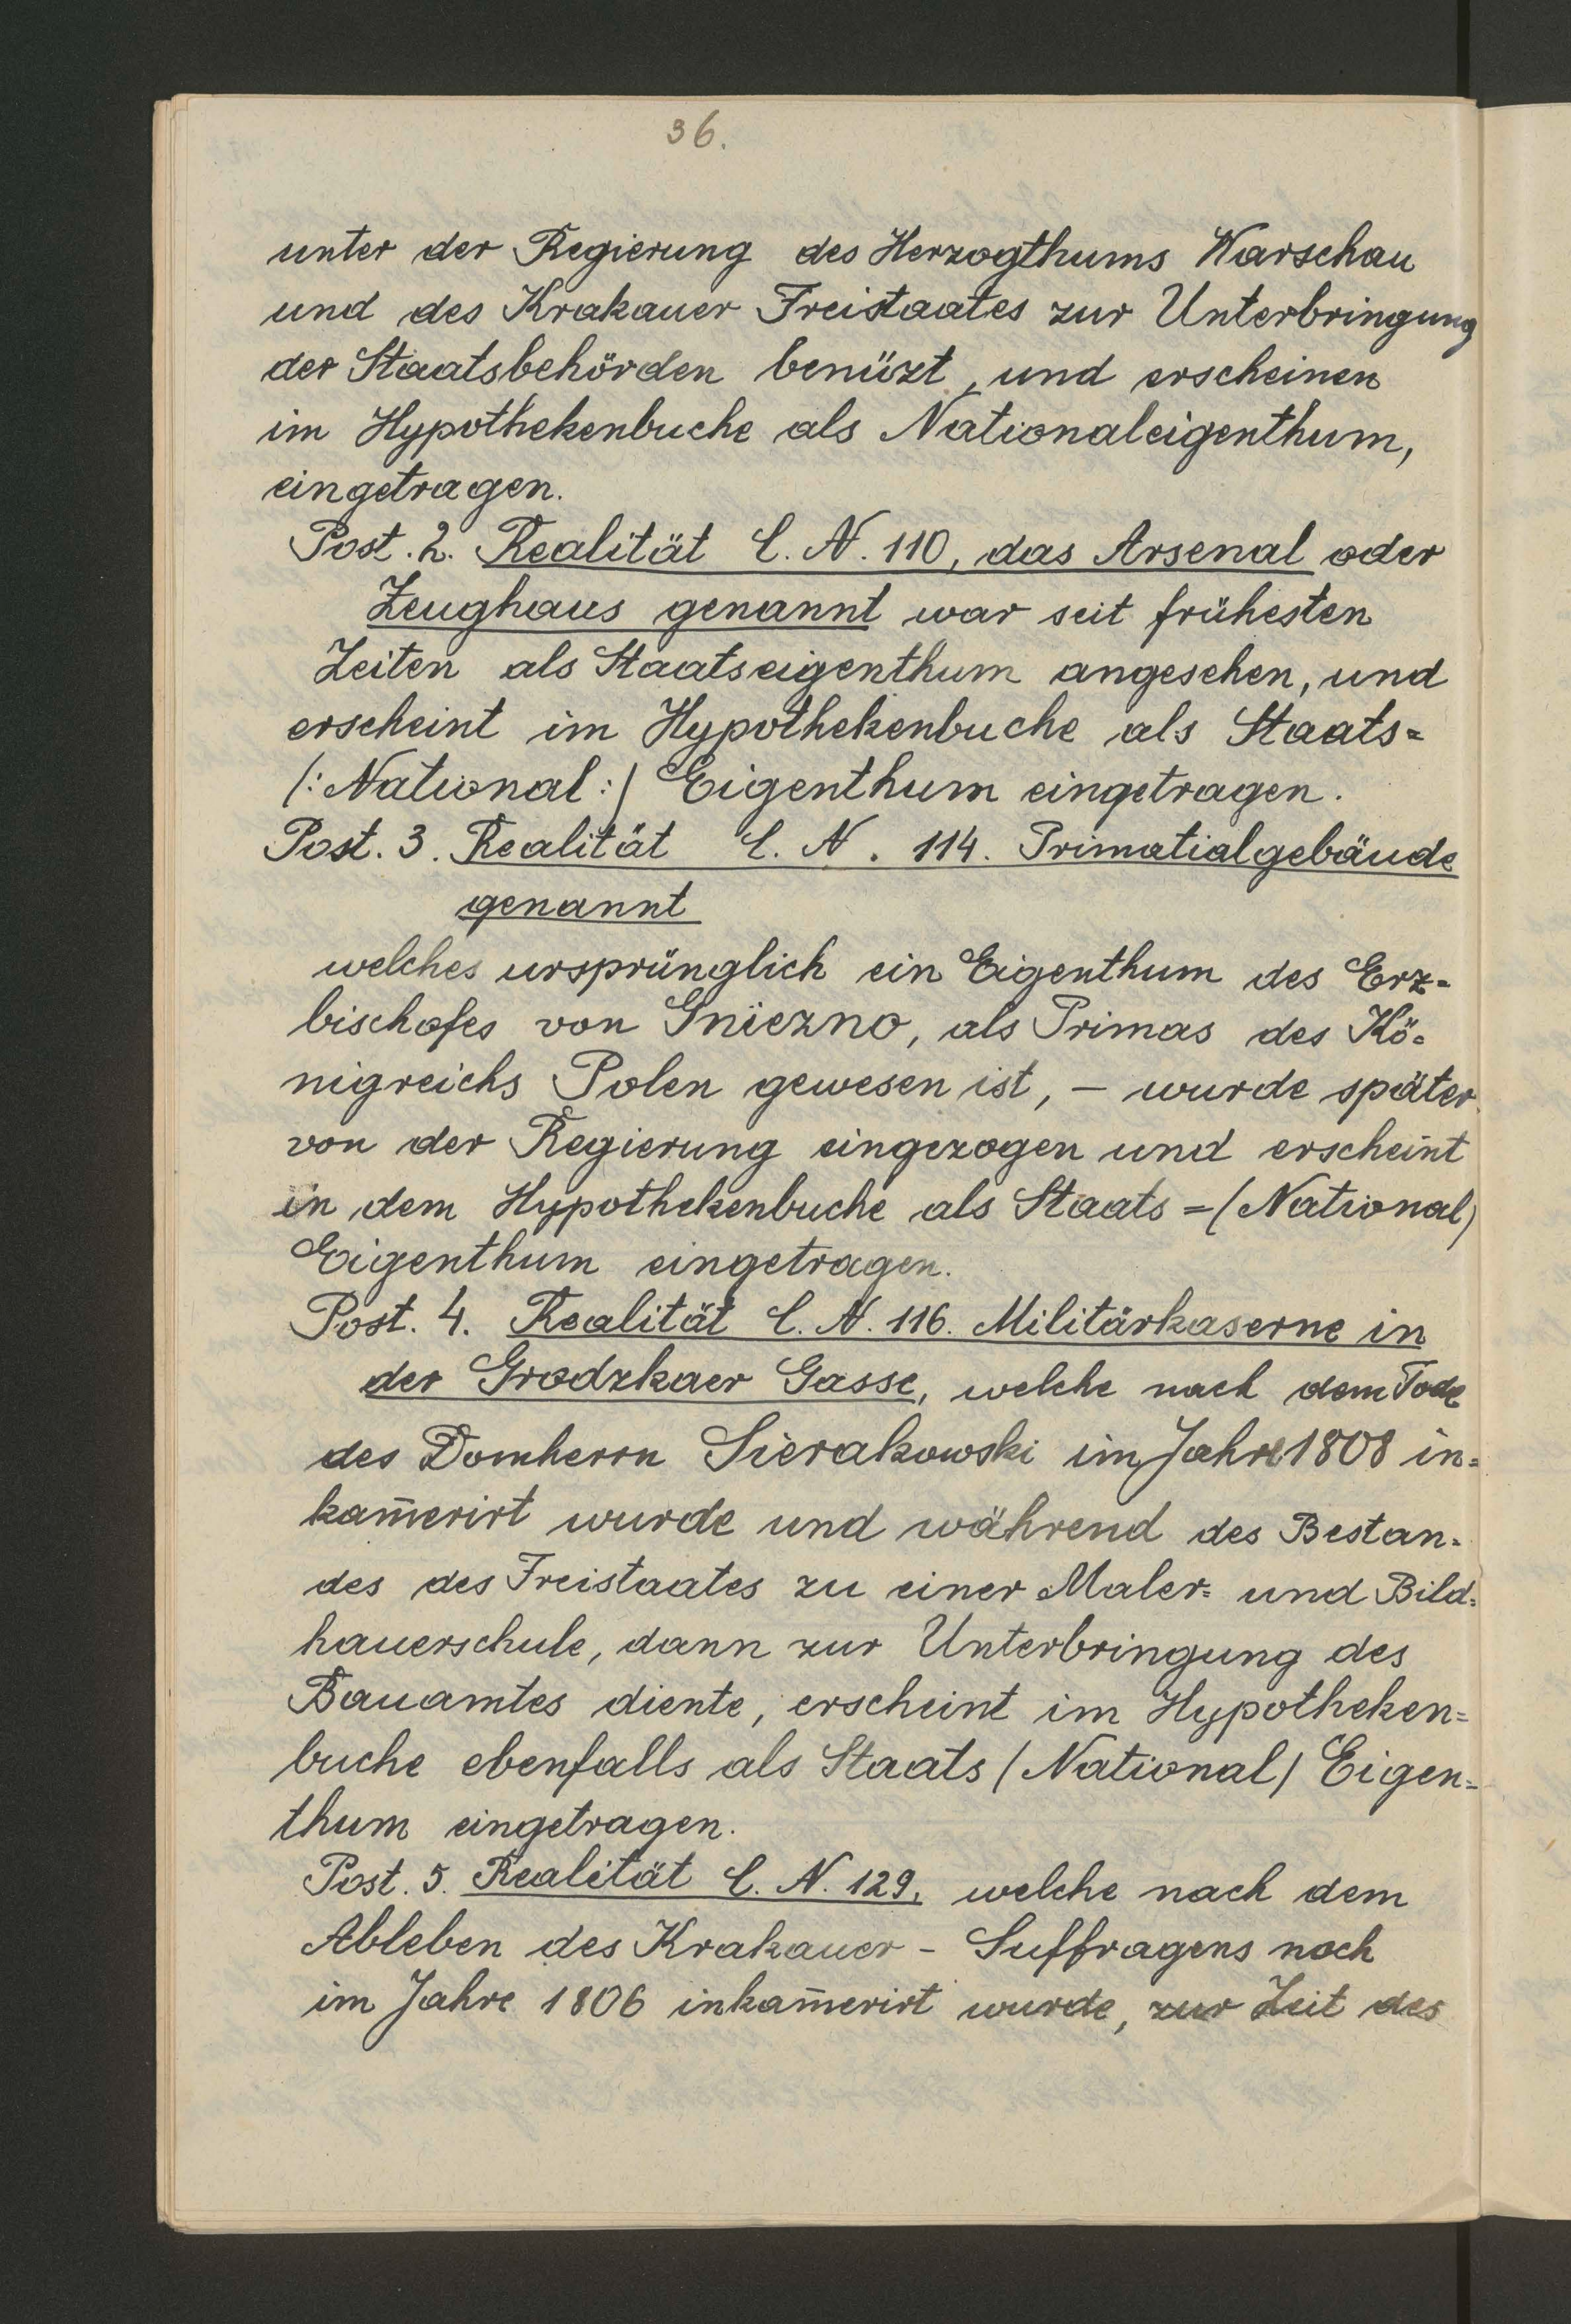 36.
unter der Regierung des Herzogthums Warschau
und des Krakauer Freistaates zur Unterbringung
der Staatsbehörden benüzt, und erscheinen
im Hypothekenbuche als Nationaleigenthum,
eingetragen.
Post. 2. Realität C. N. 110, das Arsenal oder
Zeughaus genannt war seit frühesten
Zeiten als Staatseigenthum angesehen, und
erscheint im Hypothekenbuche als Staats=
/: National :/ Eigenthum eingetragen.
Post. 3. Realität C. N. 114. Primatialgebäude
genannt
welches ursprünglich ein Eigenthum des Erz=
bischofes von Gniezno, als Primas des Kö=
nigreichs Polen gewesen ist, – wurde später
von der Regierung eingezogen und erscheint
in dem Hypothekenbuche als Staats =(National)
Eigenthum eingetragen.
Post. 4. Realität C. N. 116. Militärkaserne in
der Grodzkaer Gasse, welche nach dem Tode
des Domherrn Sierakowski im Jahre 1808 in=
kam̄erirt wurde und während des Bestan=
des des Freistaates zu einer Maler= und Bild=
hauerschule, dann zur Unterbringung des
Bauamtes diente, erscheint im Hypotheken=
buche ebenfalls als Staats /National/ Eigen=
thum eingetragen.
Post. 5. Realität C. N. 129, welche nach dem
Ableben des Krakauer - Suffragens noch
im Jahre 1806 inkam̄erirt wurde, zur Zeit des